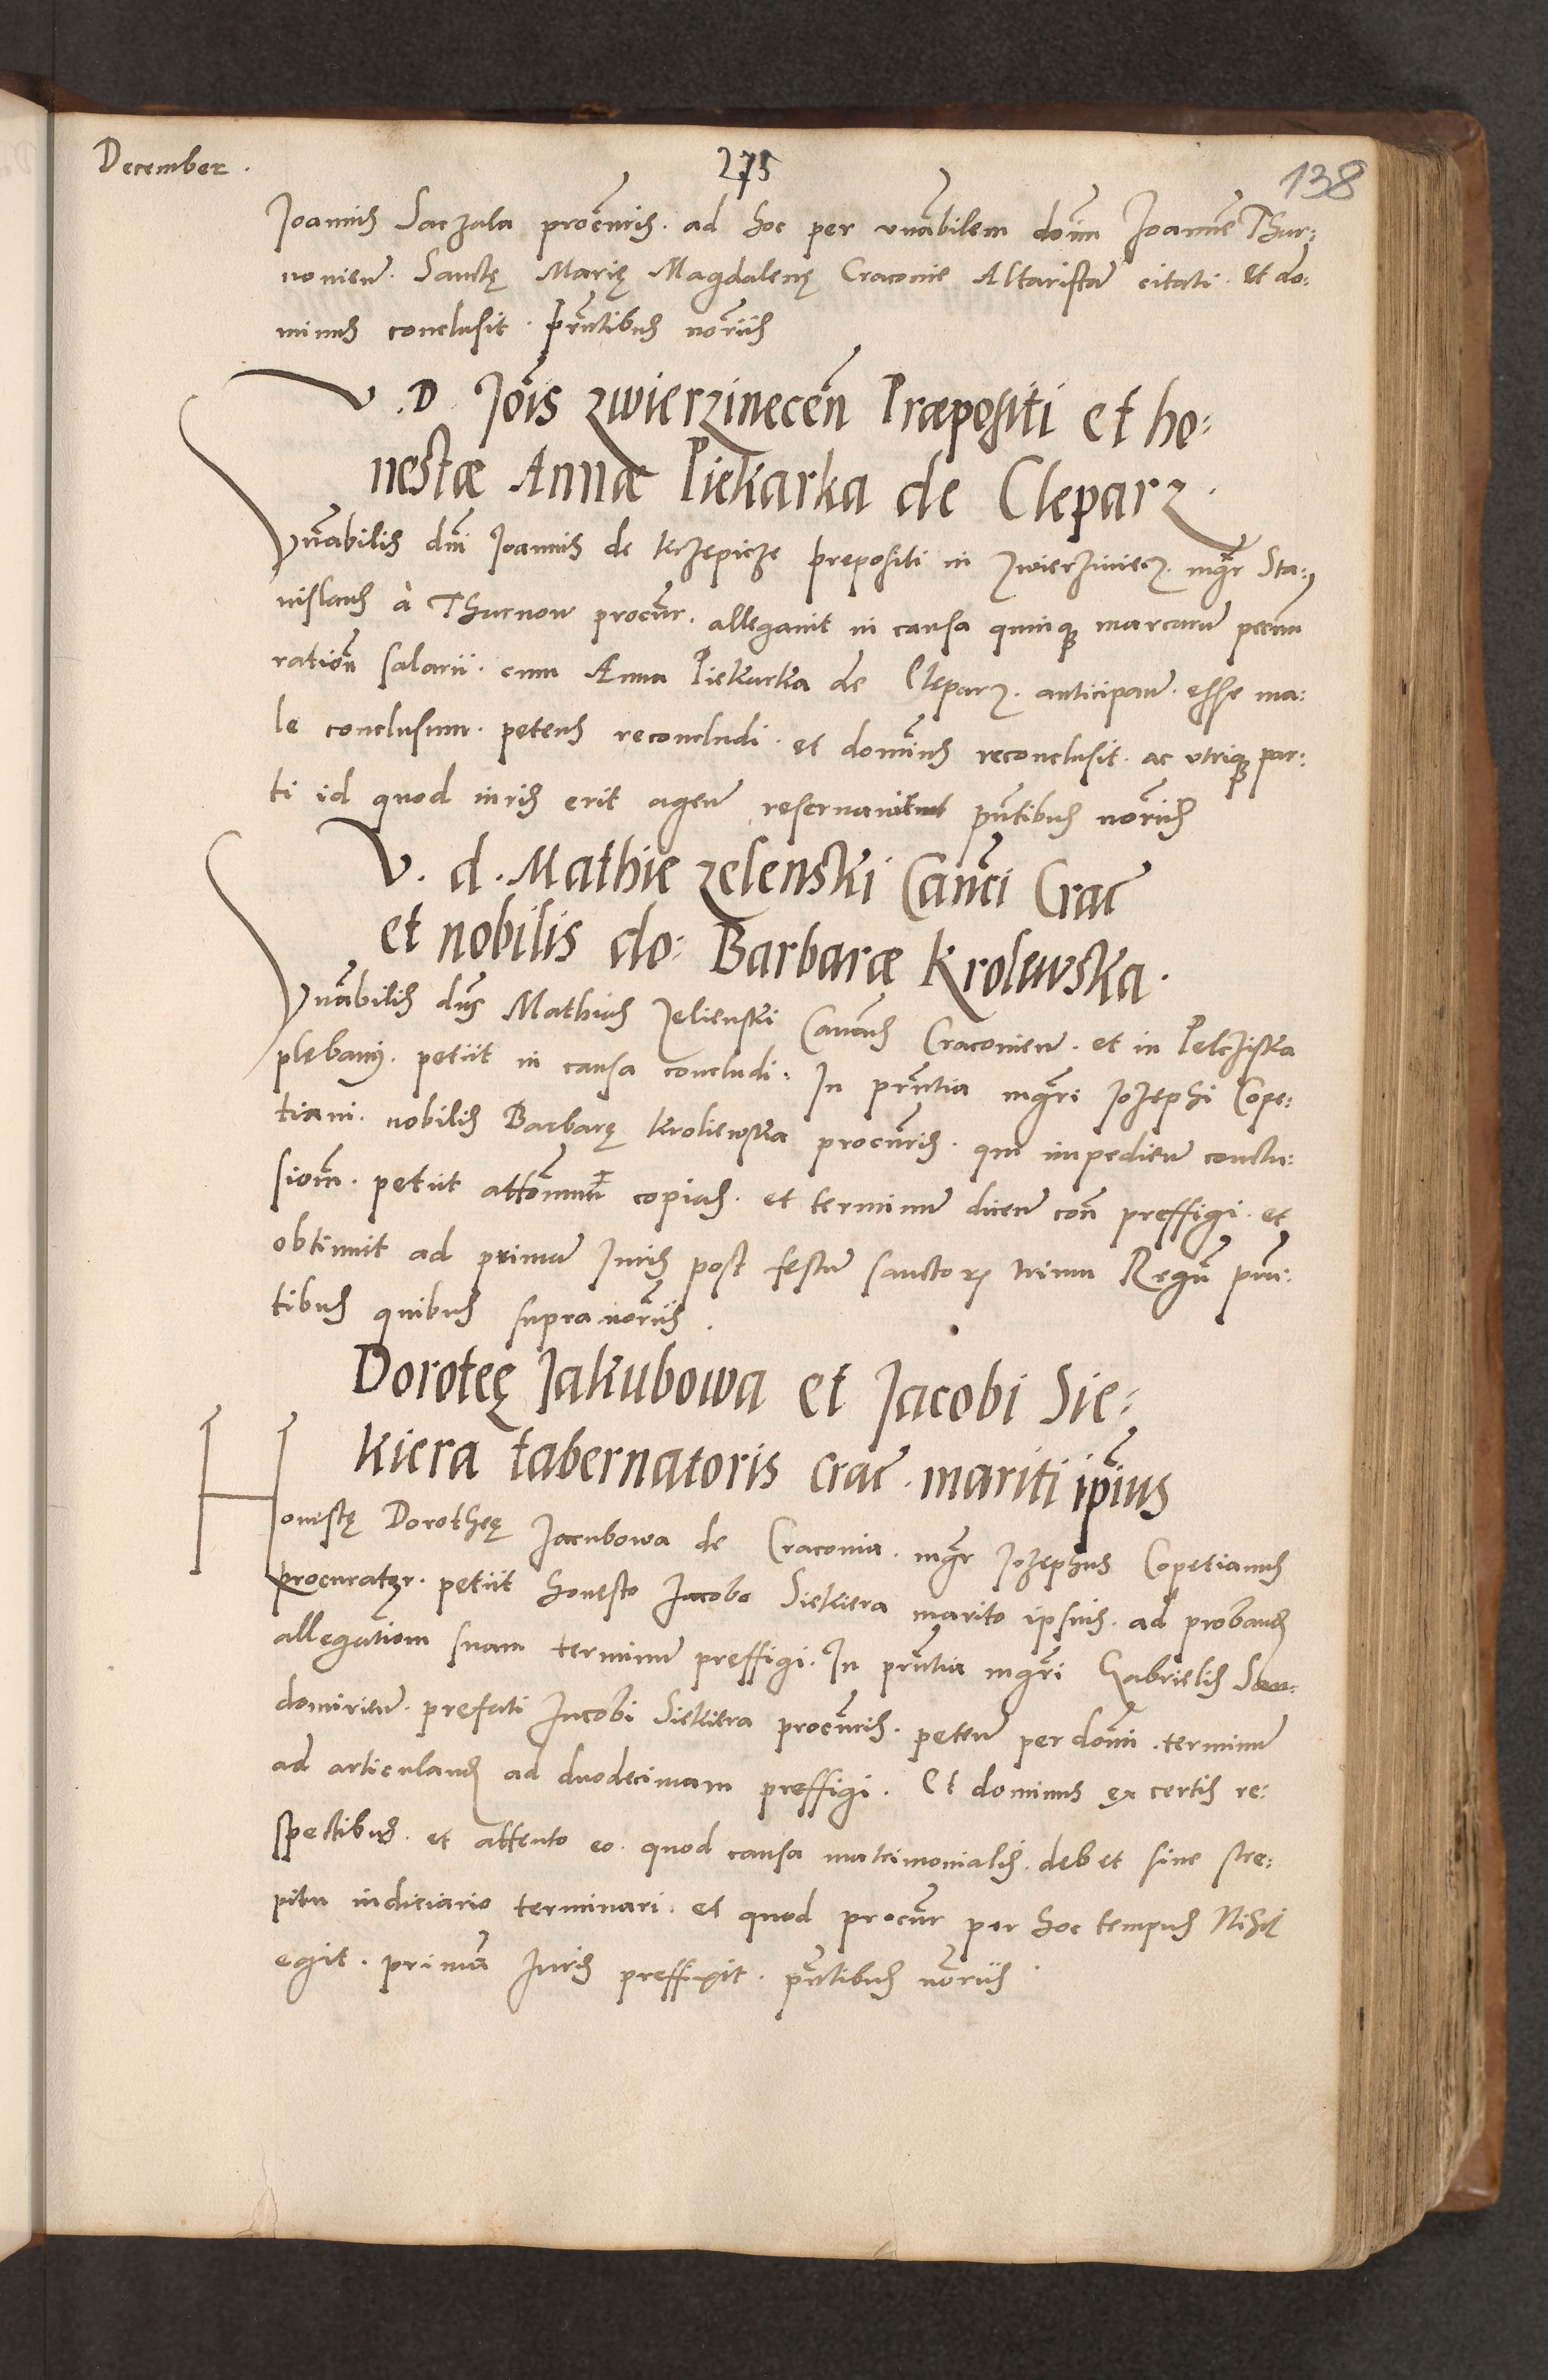 December.
275
138
Joannis Saczala procuris. ad hoc per vnabilem dom̃ Joanne Thur:
nonien. Sanctę Marię Magdalenę Craconie Altaristã citati. Et do:
minus conclusit. Pñtibus norijs
V. D. Joĩs zwierzinecen̄ Præpositi et ho:
nestæ Annæ Piekarka de Cleparz.
Vnãbilis dñi Joannis de Krzepicze prepositi in Zwierziniecz. mgr̃ Sta:
nislaus à Thurnow procur̃. allegauit in causa quinq marcarũ pecun
ration̄ salarij. cum Anna Piekarka de Cleparz. anticipan̄. esse ma:
le conclusum. petens reconcludi. et dominus reconclusit. ac vtriq par:
ti id quod iuris erit agen̄ reseruauit pñtibus norijs
V. d. Mathie zelenski Canci Crac̃
et nobilis do: Barbaræ Krolewska.
Vnãbilis dñs Mathias Zelienski Canonus Craconien̄. et in Pelcziska
plebanus. petijt in causa concludi. In pr̃ntia mgr̃i Jozephi Cope:
tiani. nobilis Barbarę Kroliewska procuris. qui impedien̄ conclu:
siom̃. petijt copias. et terminũ dicen̄ con̄ preffigi. et
obtinuit ad primã Juris post festũ sanctorũ trium Regũ pñ:
tibus quibus supra norijs.
Doroteę Jakubowa et Jacobi Sie:
kiera tabernatoris crac̃. mariti ip̃ius
Honestę Dorotheę Jacubowa de Craconia. mgr̃ Jozephus Copetianus
procurator. petijt honesto Jacobo Siekiera marito ipsius. ad proband
allegationem suam terminũ preffigi. In pr̃ntia mgr̃i Gabrielis San:
domirien̄. prefati Jacobi Siekiera procuris. peten̄ per dom̃. terminũ
ad articuland ad duodecimam preffigi. Et dominus ex certis re:
spectibus. et attento eo. quod causa matrimonialis. debet sine stre:
pitu iudiciario terminari. et quod procur̃ per hoc tempus Nihil
egit. primã Juris preffigit. pñtibus norijs.